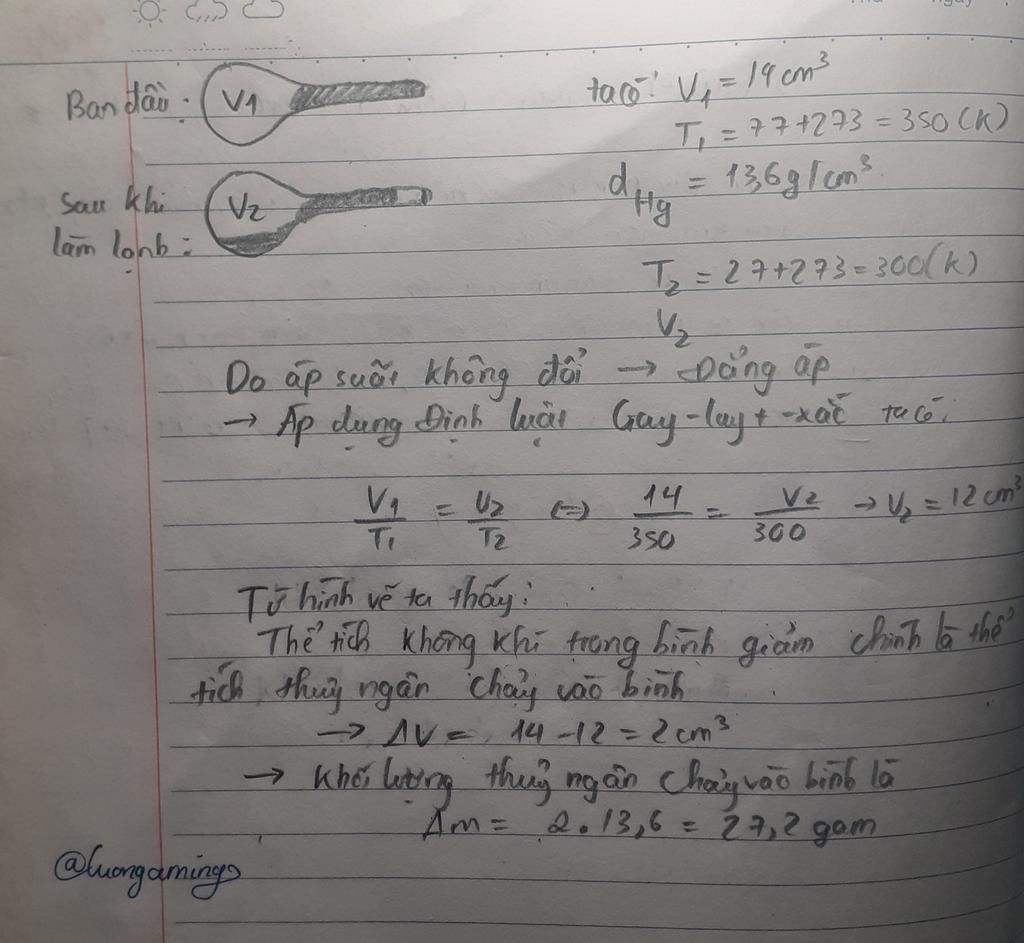 Ban đầu: V1
ta có: V₁ = 14 cm³
T₁ = 77+273 = 350 (K)
sau khi làm lạnh: V2
d_Hg = 13,6g/cm³
T₂ = 27+273 = 300(K)
V₂
Do áp suất không đổi → Đẳng áp
→ Áp dụng Định luật Gay-luyt-xắc ta có:
V₁/T₁ = V₂/T₂ (=) 14/350 = V₂/300 → V₂ = 12 cm³
Từ hình vẽ ta thấy:
Thể tích không khí trong bình giảm chính là thể
tích thuỷ ngân chảy vào bình
→ ΔV = 14 - 12 = 2 cm³
→ Khối lượng thuỷ ngân chảy vào bình là
Δm = 2.13,6 = 27,2 gam